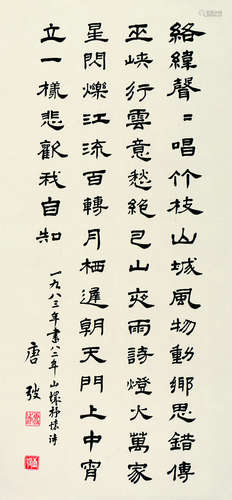 絡緯聲〻唱竹枝山城風物動鄉思錯傳
巫峽行雲意愁絕巴山夜雨詩燈火萬家
星閃爍江流百轉月栖遲朝天門上中宵
立一樣悲歡我自知
一九八三年書八二年山城抒懷詩
唐弢